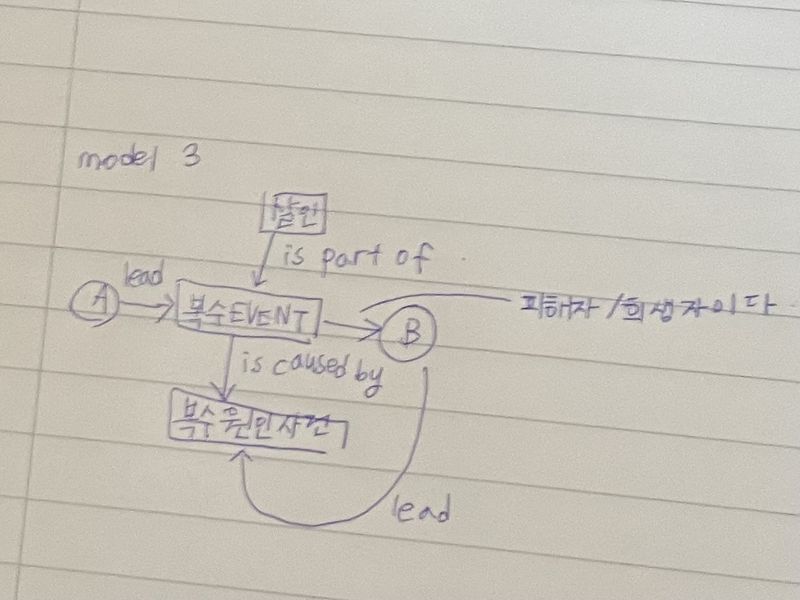 model 3
살인
is part of
lead
A
복수EVENT
피해자/희생자이다
B
is caused by
복수 원인사건
lead